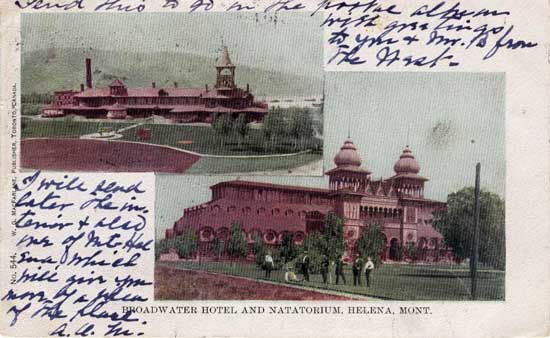 Send this to go in the postal album
with greetings
to you & Mr. B from
the West.
I will send
later the in-
terior & also
one of Mt Hel
ena which
will give you
more of a plea
of the place
A.A. M.
No. 544. W. G. MacFarlane, Publisher, Toronto, Canada.
BROADWATER HOTEL AND NATATORIUM, HELENA, MONT.